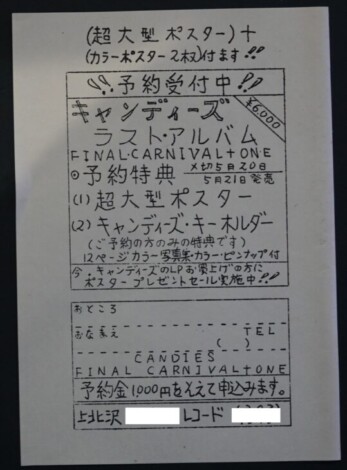 (超大型ポスター)+
(カラーポスター2枚)付ます!!
予約受付中!!
¥6000
キャンディーズ
ラスト・アルバム
FINAL・CARNIVAL+ONE
◎予約特典 〆切5月20日
5月21日発売
(1)超大型ポスター
(2)キャンディーズ・キーホルダー
(ご予約の方のみの特典です)
12ページカラー写真集・カラー・ピンナップ付
今、キャンディーズのLPお買上げの方に
ポスタープレゼントセール実施中!!
おところ
おなまえ TEL
( )
CANDIES
FINAL CARNIVAL+ONE
予約金1,000円をそえて申込みます。
上北沢 レコード